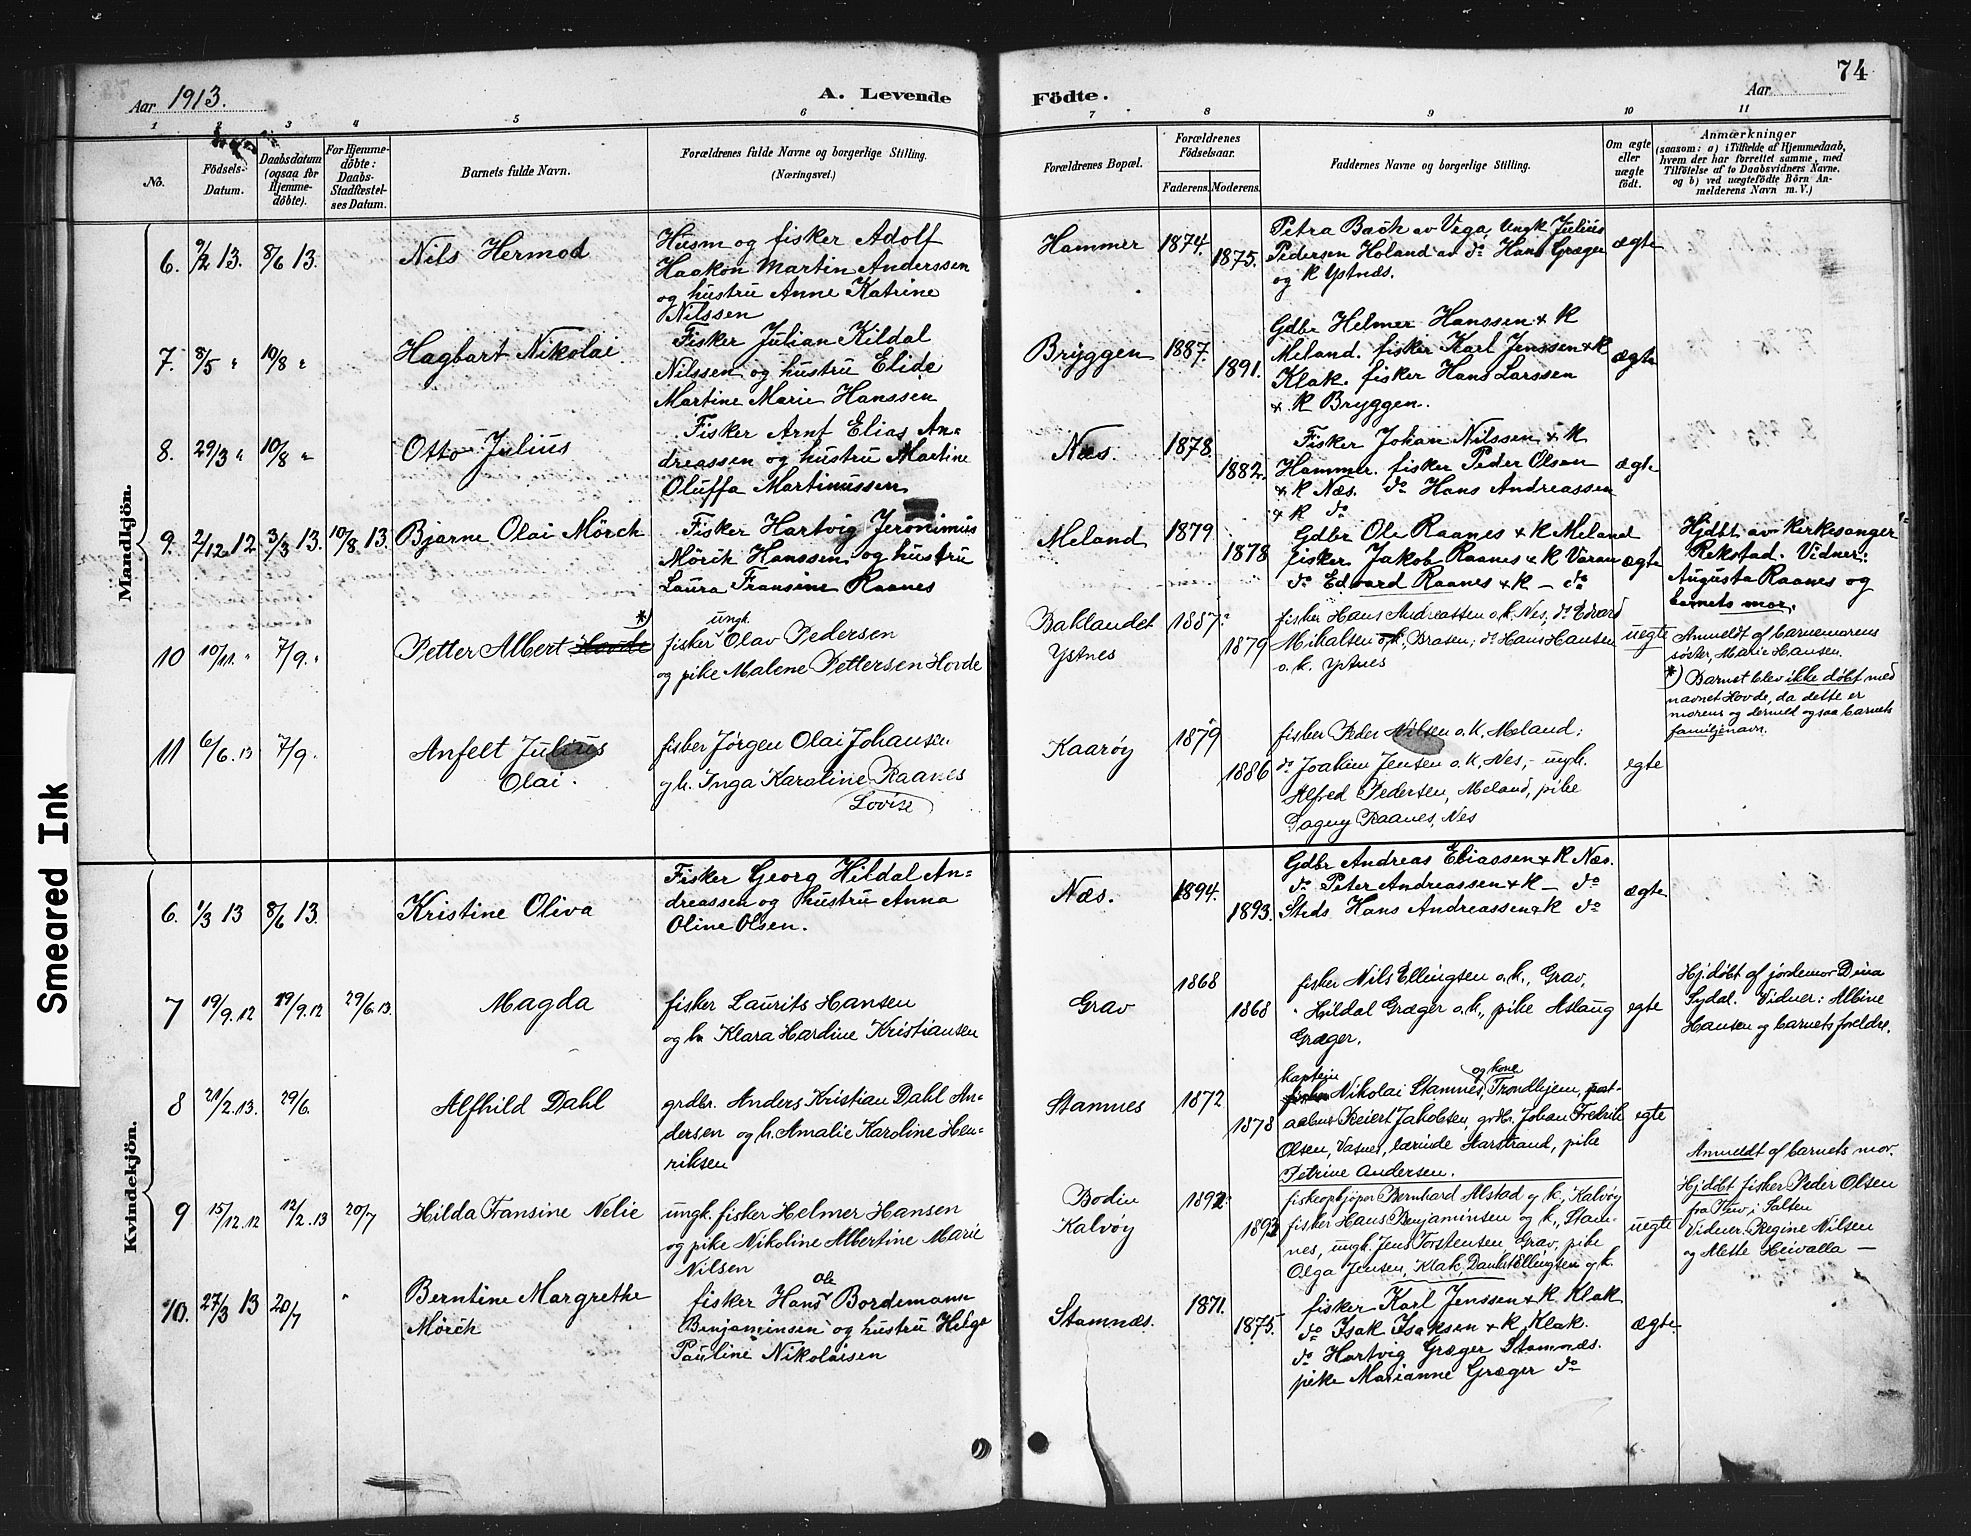 74
Aar 1913. A. Levende Födte. Aar
1 2 3 4 5 6 7 8 9 10 11
No.
Födsels-
Datum.
Daabsdatum
(ogsaa for
Hjemme-
döbte).
For Hjemme-
döbte:
Daabs-
Stadfæstel-
ses Datum.
Barnets fulde Navn.
Forældrenes fulde Navne og borgerlige Stilling.
(Næringsvei.)
Forældrenes Bopæl.
Forældrenes
Födselsaar.
Faderens. Moderens.
Faddernes Navne og borgerlige Stilling.
Om ægte
eller
uægte
født.
Anmærkninger
(saasom: a) i Tilfælde af Hjemmedaab,
hvem der har forrettet samme, med
Tilföielse af to Daabsvidners Navne,
og b) ved uægtefödte Börn An-
melderens Navn m. V.)
Mandkjön.
6. 9/2 13. 8/6 13. Nils Hermod
Husm og fisker Adolf
Haakon Martin Anderssen
og hustru Anne Katrine
Nilssen
Hammer 1874. 1875.
Petra Back av Vega, Ungk Julius
Pedersen Holand av do Hans Græger
og K Ystnæs.
ægte
7. 8/5 " 10/8 " Hagbart Nikolai
Fisker Julian Kildal
Nilssen og hustru Elide
Martine Marie Hanssen
Bryggen 1887. 1891.
Gdbr Helmer Hanssen + K
Meland. fisker Karl Jenssen + K
Klak. fisker Hans Larssen
+ K Bryggen.
ægte
8. 29/3 " 10/8 " Otto Julius
Fisker Arnt Elias An=
dreassen og hustru Martine
Oluffa Martinussen
Næs. 1878. 1882.
Fisker Johan Nilssen + K
Hammer. fisker Peder Olsen
+ K Næs. do Hans Andreassen
+ K do
ægte
9. 2/12 12 3/3 13. 10/8 13. Bjarne Olai Mörch
Fisker Hartvig Jeronimus
Mörch Hanssen og hustru
Laura Fransine Raanes
Meland 1879 1878
Gdbr Ole Raanes + K Meland
fisker Jakob Raanes + K Varan
do Edvard Raanes + K — do
ægte
Hjdbt av kirkesanger
Rekstad. Vidner:
Augusta Raanes og
barnets mor.
10 10/11. " 7/9. " Petter Albert Hovde *)
ungk.
fisker Olav Pedersen
og pike Malene Pettersen Hovde
Baklandet
Ystnes
1887. 1879
fisker Hans Andreassen o.k. Nes, do Edvard
Mikalsen o.k., Brasen; do Hans Hansen
o.k. Ystnes
uegte
Anmeldt af barnemorens
søster, Marie Hansen.
*) Barnet blev ikke døbt med
navnet Hovde, da dette er
morens og dermed ogsaa barnets
familjenavn.
11 6/6. 13 7/9. Anfelt Julius
Olai.
fisker Jörgen Olai Johansen
og h. Inga Karoline Raanes
Lovise
Kaarøy 1879 1886
fisker Peder Nilsen o.k, Meland;
do Joakim Jensen o.k, Nes, ungk.
Alfred Pedersen, Meland, pike
Dagny Raanes, Nes
egte
Kvindekjön.
6. 1/3 13 8/6 13. Kristine Oliva
Fisker Georg Hildal An=
dreassen og hustru Anna
Oline Olsen.
Næs. 1894. 1893.
Gdbr Andreas Eliassen + K Næs.
do Peter Andreassen + K — do
Stds Hans Andreassen + K do
ægte
7 19/9. 12 29/9. 12 29/6. 13. Magda
fisker Laurits Hansen
og h Klara Hardine Kristiansen
Grav 1868 1868
fisker Nils Ellingsen o.k., Grav,
" Hildal Græger o.k., pike Aslaug
Græger.
egte
Hj.døbt af jordemor Dina
Sydal. Vidner: Albine
Hansen og barnets foreldre.
8 21/2. 13. 29/6. Alfhild Dahl
grdbr. Anders Kristian Dahl An-
dersen og h. Amalie Karoline Hen-
riksen
Stamnes 1872 1878
kaptein og kone
fisker Nikolai Stamnes, Trondhjem, post-
aabner Reiert Jakobsen, grdb. Johan Fredrik
Olsen, Vasnes, lærinde Aarstrand, pike
Petrine Andersen.
egte
9 15/12. 12 12/2. 13 20/7 Hilda Fansine Nelie
ungk. fisker Helmer Hansen
og pike Nikoline Albertine Marie
Nilsen
Bodin
Kalvøy
1892. 1893
fiskeopkjøper Bernhard Alstad og k., Kalvøy
fisker Hans Benjaminsen og k., Stam-
nes, ungk. Jens Torstensen, Grav, pike
Olga Jensen, Klak, Daniel Ellingsen og k.
uegte
Anmeldt af barnets mor.
Hj.døbt fisker Peder Olsen
fra Tuv, i Salten
Vidner: Regine Nilsen
og Mette Heivalla —
10. 27/3 13 20/7 " Berntine Margrethe
Mörch
Ole
fisker Hans Bordemann
Benjaminsen og hustru Helga
Pauline Nikolaisen
Stamnæs. 1871. 1875.
fisker Karl Jenssen + K Klak
do Isak Isaksen + K, Klak.
do Hartvig Græger Stamnæs.
pike Marianne Græger do
ægte.
Smeared Ink